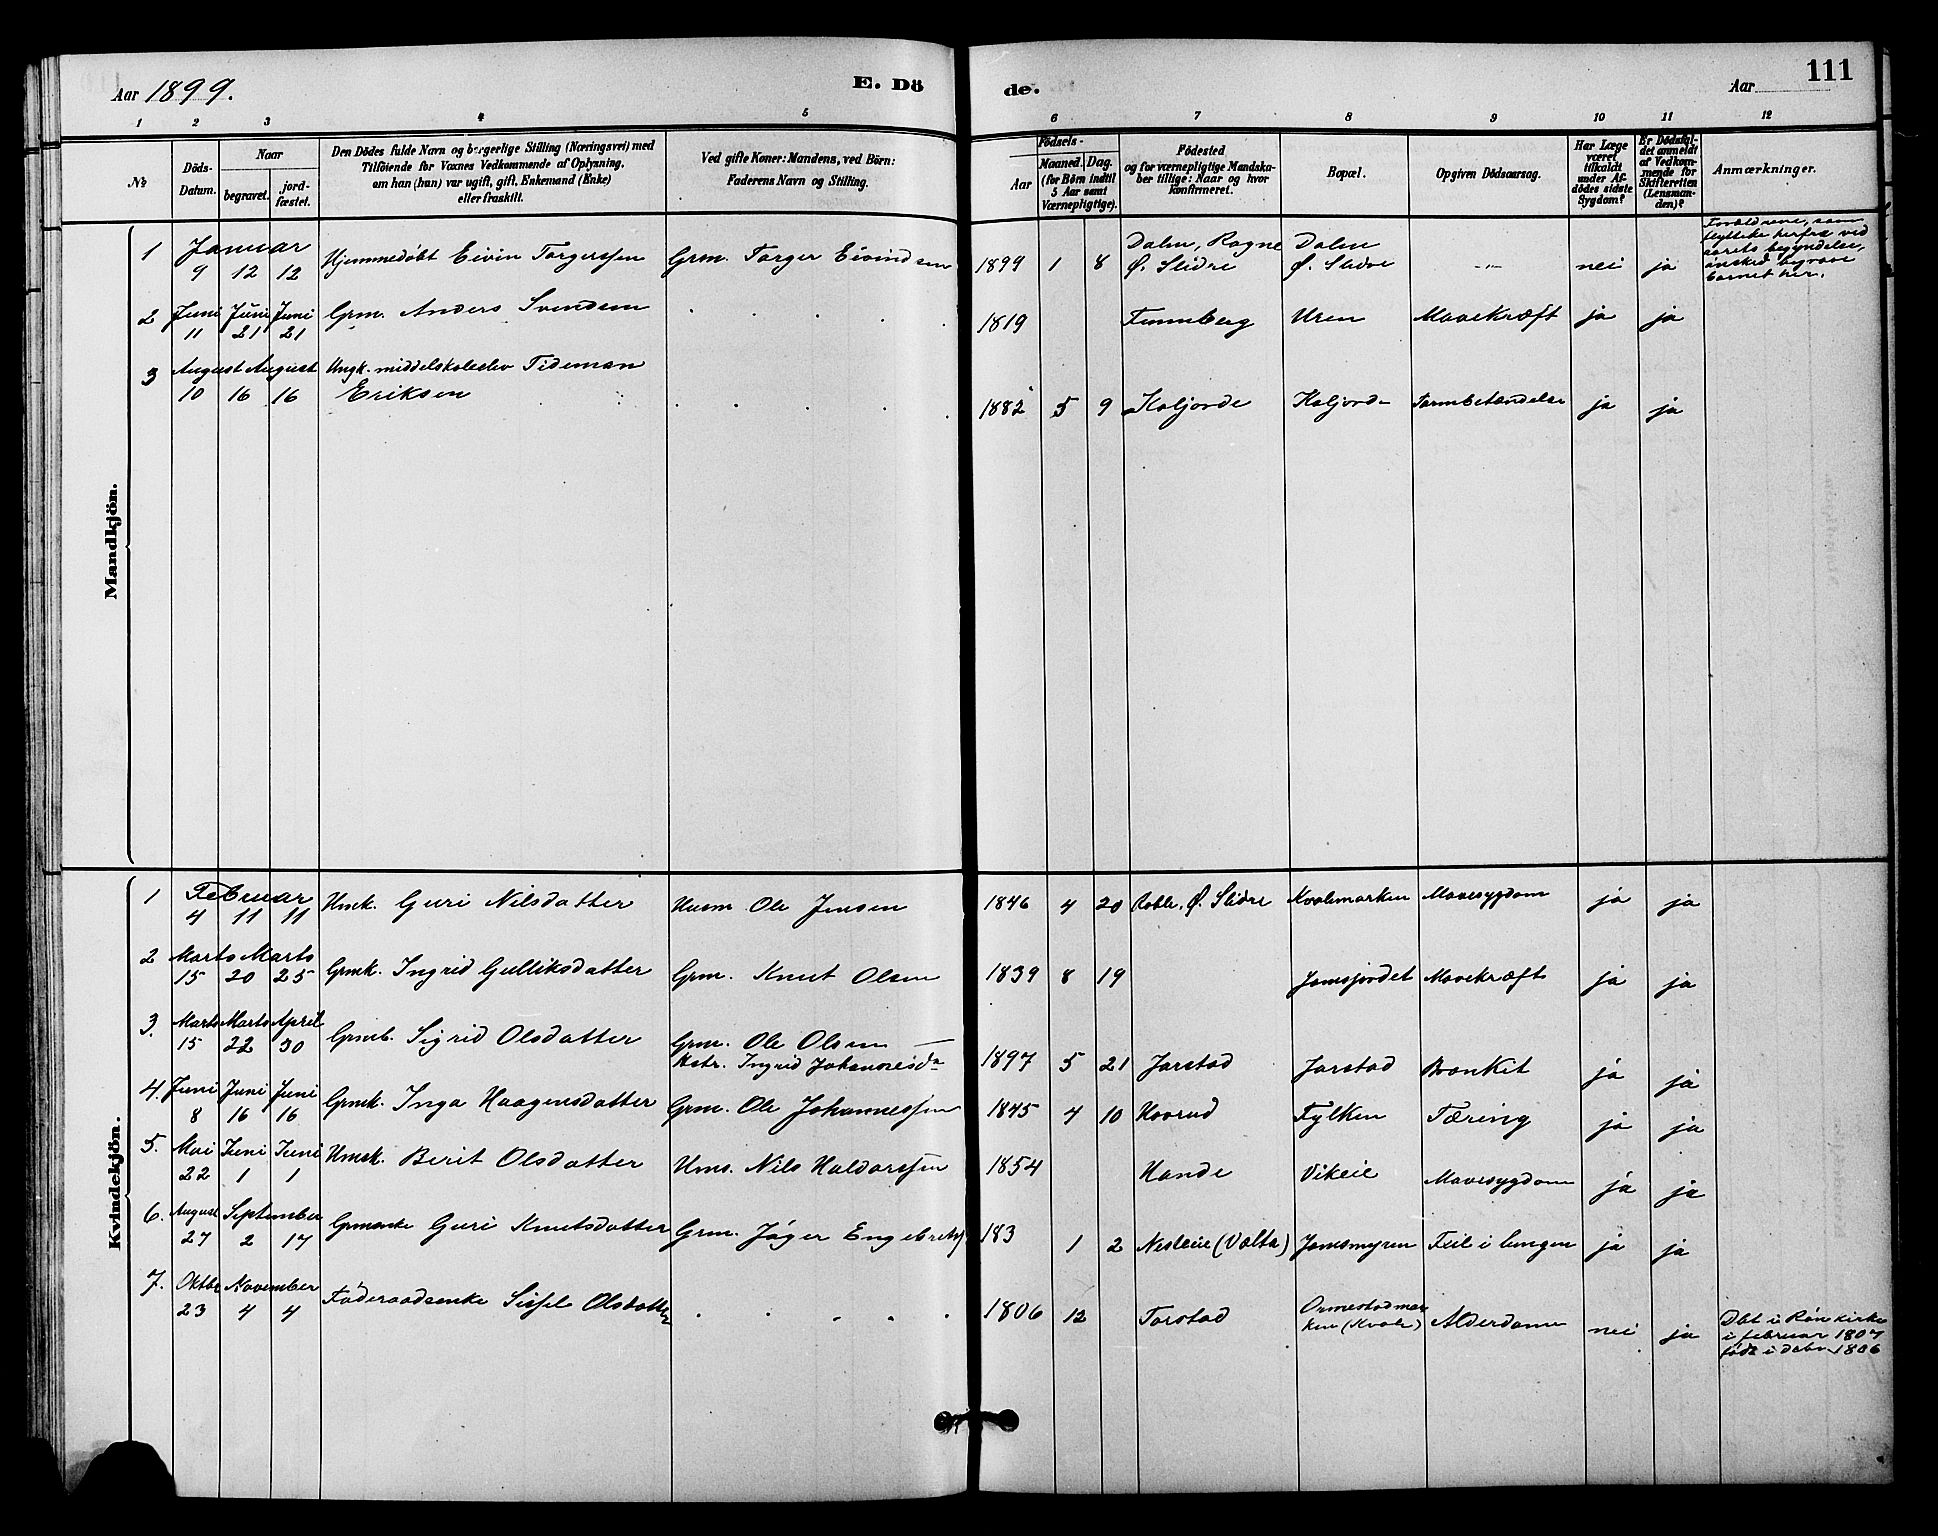 Aar 1899.
E. Dö
de.
Aar
111
1 2 3 4 5 6 7 8 9 10 11 12
№
Döds-
Datum.
Naar
begravet.
jord-
fæstet.
Den Dödes fulde Navn og borgerlige Stilling (Næringsvei) med
Tilföiende for Voxnes Vedkommende af Oplysning,
om han (hun) var ugift, gift, Enkemand (Enke)
eller fraskilt.
Ved gifte Koner: Mandens, ved Börn:
Faderens Navn og Stilling.
Födsels-
Aar
Maaned. Dag.
(for Börn indtil
5 Aar samt
Værnepligtige).
Födested
og for værnepligtige Mandska-
ber tillige: Naar og hvor
konfirmeret.
Bopæl.
Opgiven Dödsaarsag.
Har Læge
været
tilkaldt
under Af-
dödes sidste
Sygdom?
Er Dödsfal-
det anmeldt
af Vedkom-
mende for
Skifteretten
(Lensman-
den)?
Anmærkninger.
Mandkjön.
1 Januar 9 12 12 Hjemmedøbt Eivin Torgerssen Grm. Torger Eivindsen 1899 1 8 Dalen, Rogne Ø. Slidre Dalen Ø. Slidre -"- nei ja
Forældrene, som
flyttede herfra ved
aarets begyndelse,
ønsked begrave
barnet her.
2 Juni 11 Juni 21 Juni 21 Grm. Anders Svendsen . . . . 1819 Uren Mavekræft ja ja
3 August 10 August 16 16 Ungk. middelskoleelev Tideman
Eriksen . . . . 1882 5 9 Koljorde Koljorde Tarmbetændelse ja ja
Kvindekjön.
1 Februar 4 11 11 Hmk. Guri Nilsdatter Husm Ole Jensen 1846 4 20 Roble, Ø. Slidre Kvalemarken Mavesygdom ja ja
2 Marts 15 Marts 20 25 Grmk. Ingrid Gulliksdatter Grm. Knut Olsen 1839 8 19 Jomsjordet Mavekræft ja ja
3. Marts 15 Marts 22 April 30 Grmb. Sigrid Olsdatter Grm. Ole Olsen —
Hstr. Ingrid Johannesdr 1897 5 21 Jarstad Jarstad Bronkit ja ja
4. Juni 8 Juni 16 Juni 16 Grmk. Inga Haagensdatter Grm. Ole Johannessen 1845 4 10 Hovrud Fylken Tæring ja ja
5. Mai 22 Juni 1 Juni 1 Hmsk. Berit Olsdatter Hms. Nils Haldorssen 1854 Hande Vikeie Mavesygdom ja ja
6. August 27 September 2 17 Grmenke Guri Knutsdatter Grm. Jøger Engebrets 183 1 2 Nesteie (Volta) Jomsmyren Feil i lungen ja ja
7. Oktbr 23 November 4 4 Föderaadsenke Sissel Olsdatter . . . . 1806 12 Tarstad Ormestadmar-
ken (Kvale) Alderdom nei ja
Dbt i Røn kirke
i februar 1807
født i debr 1806